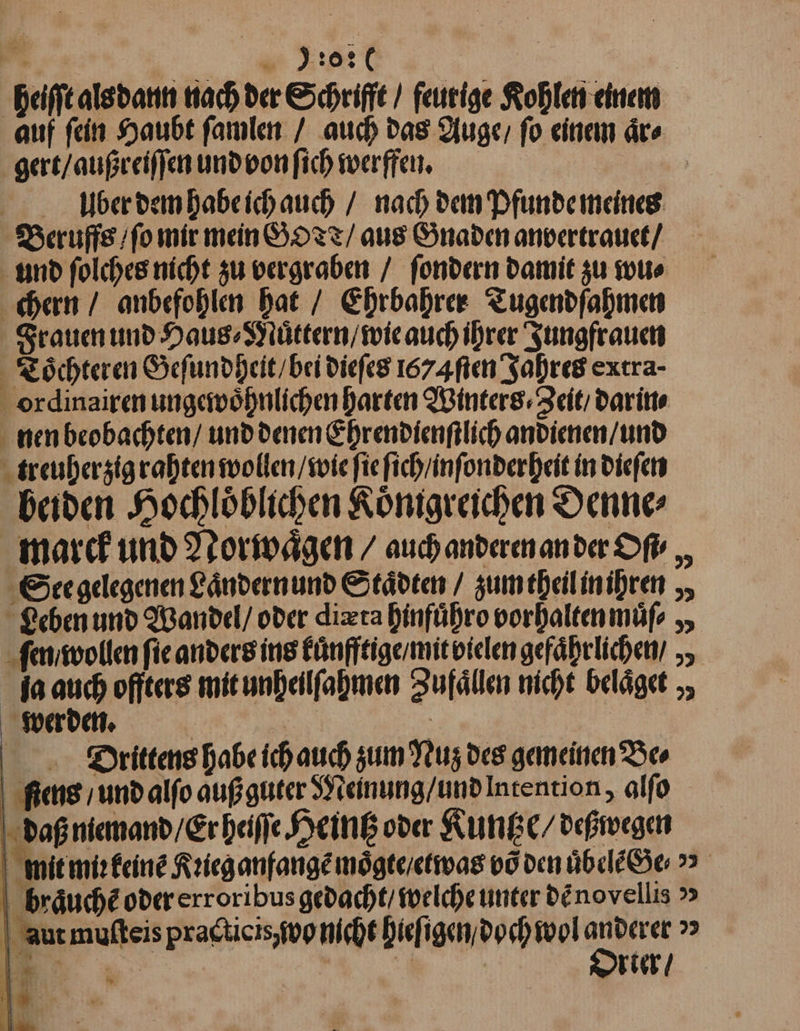 ):o:(
heisſt alsdann nach der Schrifft / feurige Kohlen einem
auf ſein Haubt ſamlen / auch das Auge / ſo einem aͤr⸗
gert / außreiſſen und von ſich werffen.
Uber dem habe ich auch / nach dem Pfunde meines
Beruffs / ſo mir mein GOTT / aus Gnaden anvertrauet /
und ſolches nicht zu vergraben / ſondern damit zu wu⸗
chern / anbefohlen hat / Ehrbahrer Tugendſahmen
Frauen und Haus⸗Muͤttern / wie auch ihrer Jungfrauen
Toͤchteren Geſundheit / bei dieſes 1674ſten Jahres extra-
ordinairen ungewoͤhnlichen harten Winters⸗Zeit / darin⸗
nen beobachten / und denen Ehrendienſtlich andienen / und
treuherzig rahten wollen / wie ſie ſich / inſonderheit in dieſen
beiden Hochloͤblichen Koͤnigreichen Denne⸗
marck und Norwaͤgen / auch anderen an der Oſt⸗ „
See gelegenen Laͤndern und Staͤdten / zum theil in ihren „
Leben und Wandel / oder diæta hinfuͤhro vorhalten muͤſ⸗ „
ſen / wollen ſie anders ins kuͤnfftige / mit vielen gefaͤhrlichen / „
ja auch offters mit unheilſahmen Zufaͤllen nicht belaͤget „
werden.
Drittens habe ich auch zum Nuz des gemeinen Be⸗
ſtens / und alſo auß guter Meinung / und Intention, alſo
daß niemand / Er heiſſe Heintz oder Kuntze / deßwegen
mit mir keinẽ Krieg anfangẽ moͤgte / etwas võ den uͤbelẽ Ge⸗ „
braͤuchẽ oder erroribus gedacht / welche unter dẽ novellis „
aut muſteis practicis, wo nicht hieſigen / doch wol anderer „
Orter /